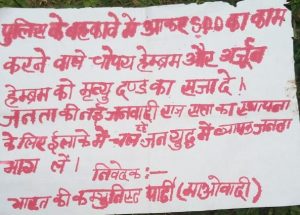 पुलिस के बहकावे में आकर S.P.O का काम
करने वाले चोपय हेम्ब्रम और अर्जुन
हेम्ब्रम को मृत्यु दण्ड का सजा दे।
जनता की नई जनवादी राज सत्ता का स्थापना
के लिए ईलाके में चल रहे जन युद्ध में व्यापक जनता
भाग लें।
निवेदक :—
भारत की कम्युनिस्ट पार्टी (माओवादी)